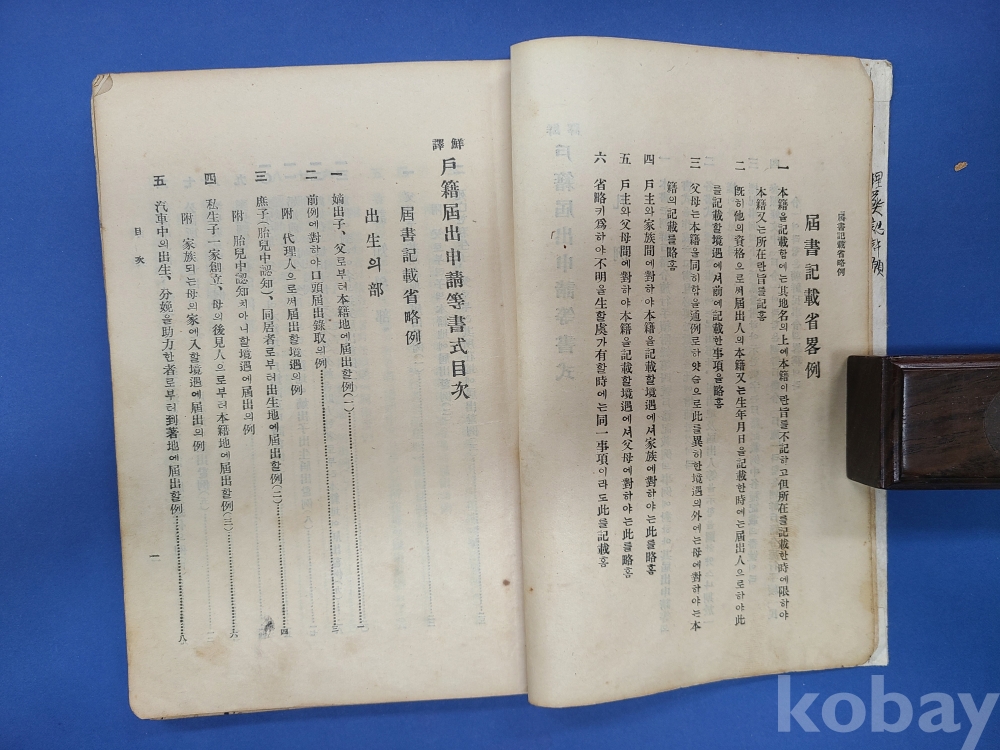 屆書記載省略例
屆書記載省畧例
一 本籍을記載함에는其地名의上에本籍이란旨를不記하고但所在를記載한時에限하야
本籍又는所在란旨를記홈
二 旣히他의資格으로써屆出人의本籍又는生年月日을記載한時에는屆出人으로하야此
를記載할境遇에셔前에記載한事項을略홈
三 父母는本籍을同히함을通例로하얏슴으로此를異히한境遇의外에는母에對하야는本
籍의記載를略홈
四 戶主와家族間에對하야本籍을記載할境遇에셔家族에對하야는此를略홈
五 戶主와父母間에對하야本籍을記載할境遇에셔父母에對하야는此를略홈
六 省略키爲하야不明을生할虞가有할時에는同一事項이라도此를記載홈
鮮譯 戶籍屆出申請等書式目次
屆書記載省略例
出生의部
一 嫡出子、父로부터本籍地에屆出할例(一)……一
二 前例에對하야口頭屆出錄取의例……三
附 代理人으로써屆出할境遇의例……四
三 庶子(胎兒中認知)、同居者로부터出生地에屆出할例(二)
附 胎兒中認知치아니할境遇에屆出의例……六
四 私生子一家創立、母의後見人으로부터本籍地에屆出할例(三)
附 家族되는母의家에入할境遇에屆出의例
五 汽車中의出生、分娩을助力한者로부터到著地에屆出할例……八
目次
一
kobay